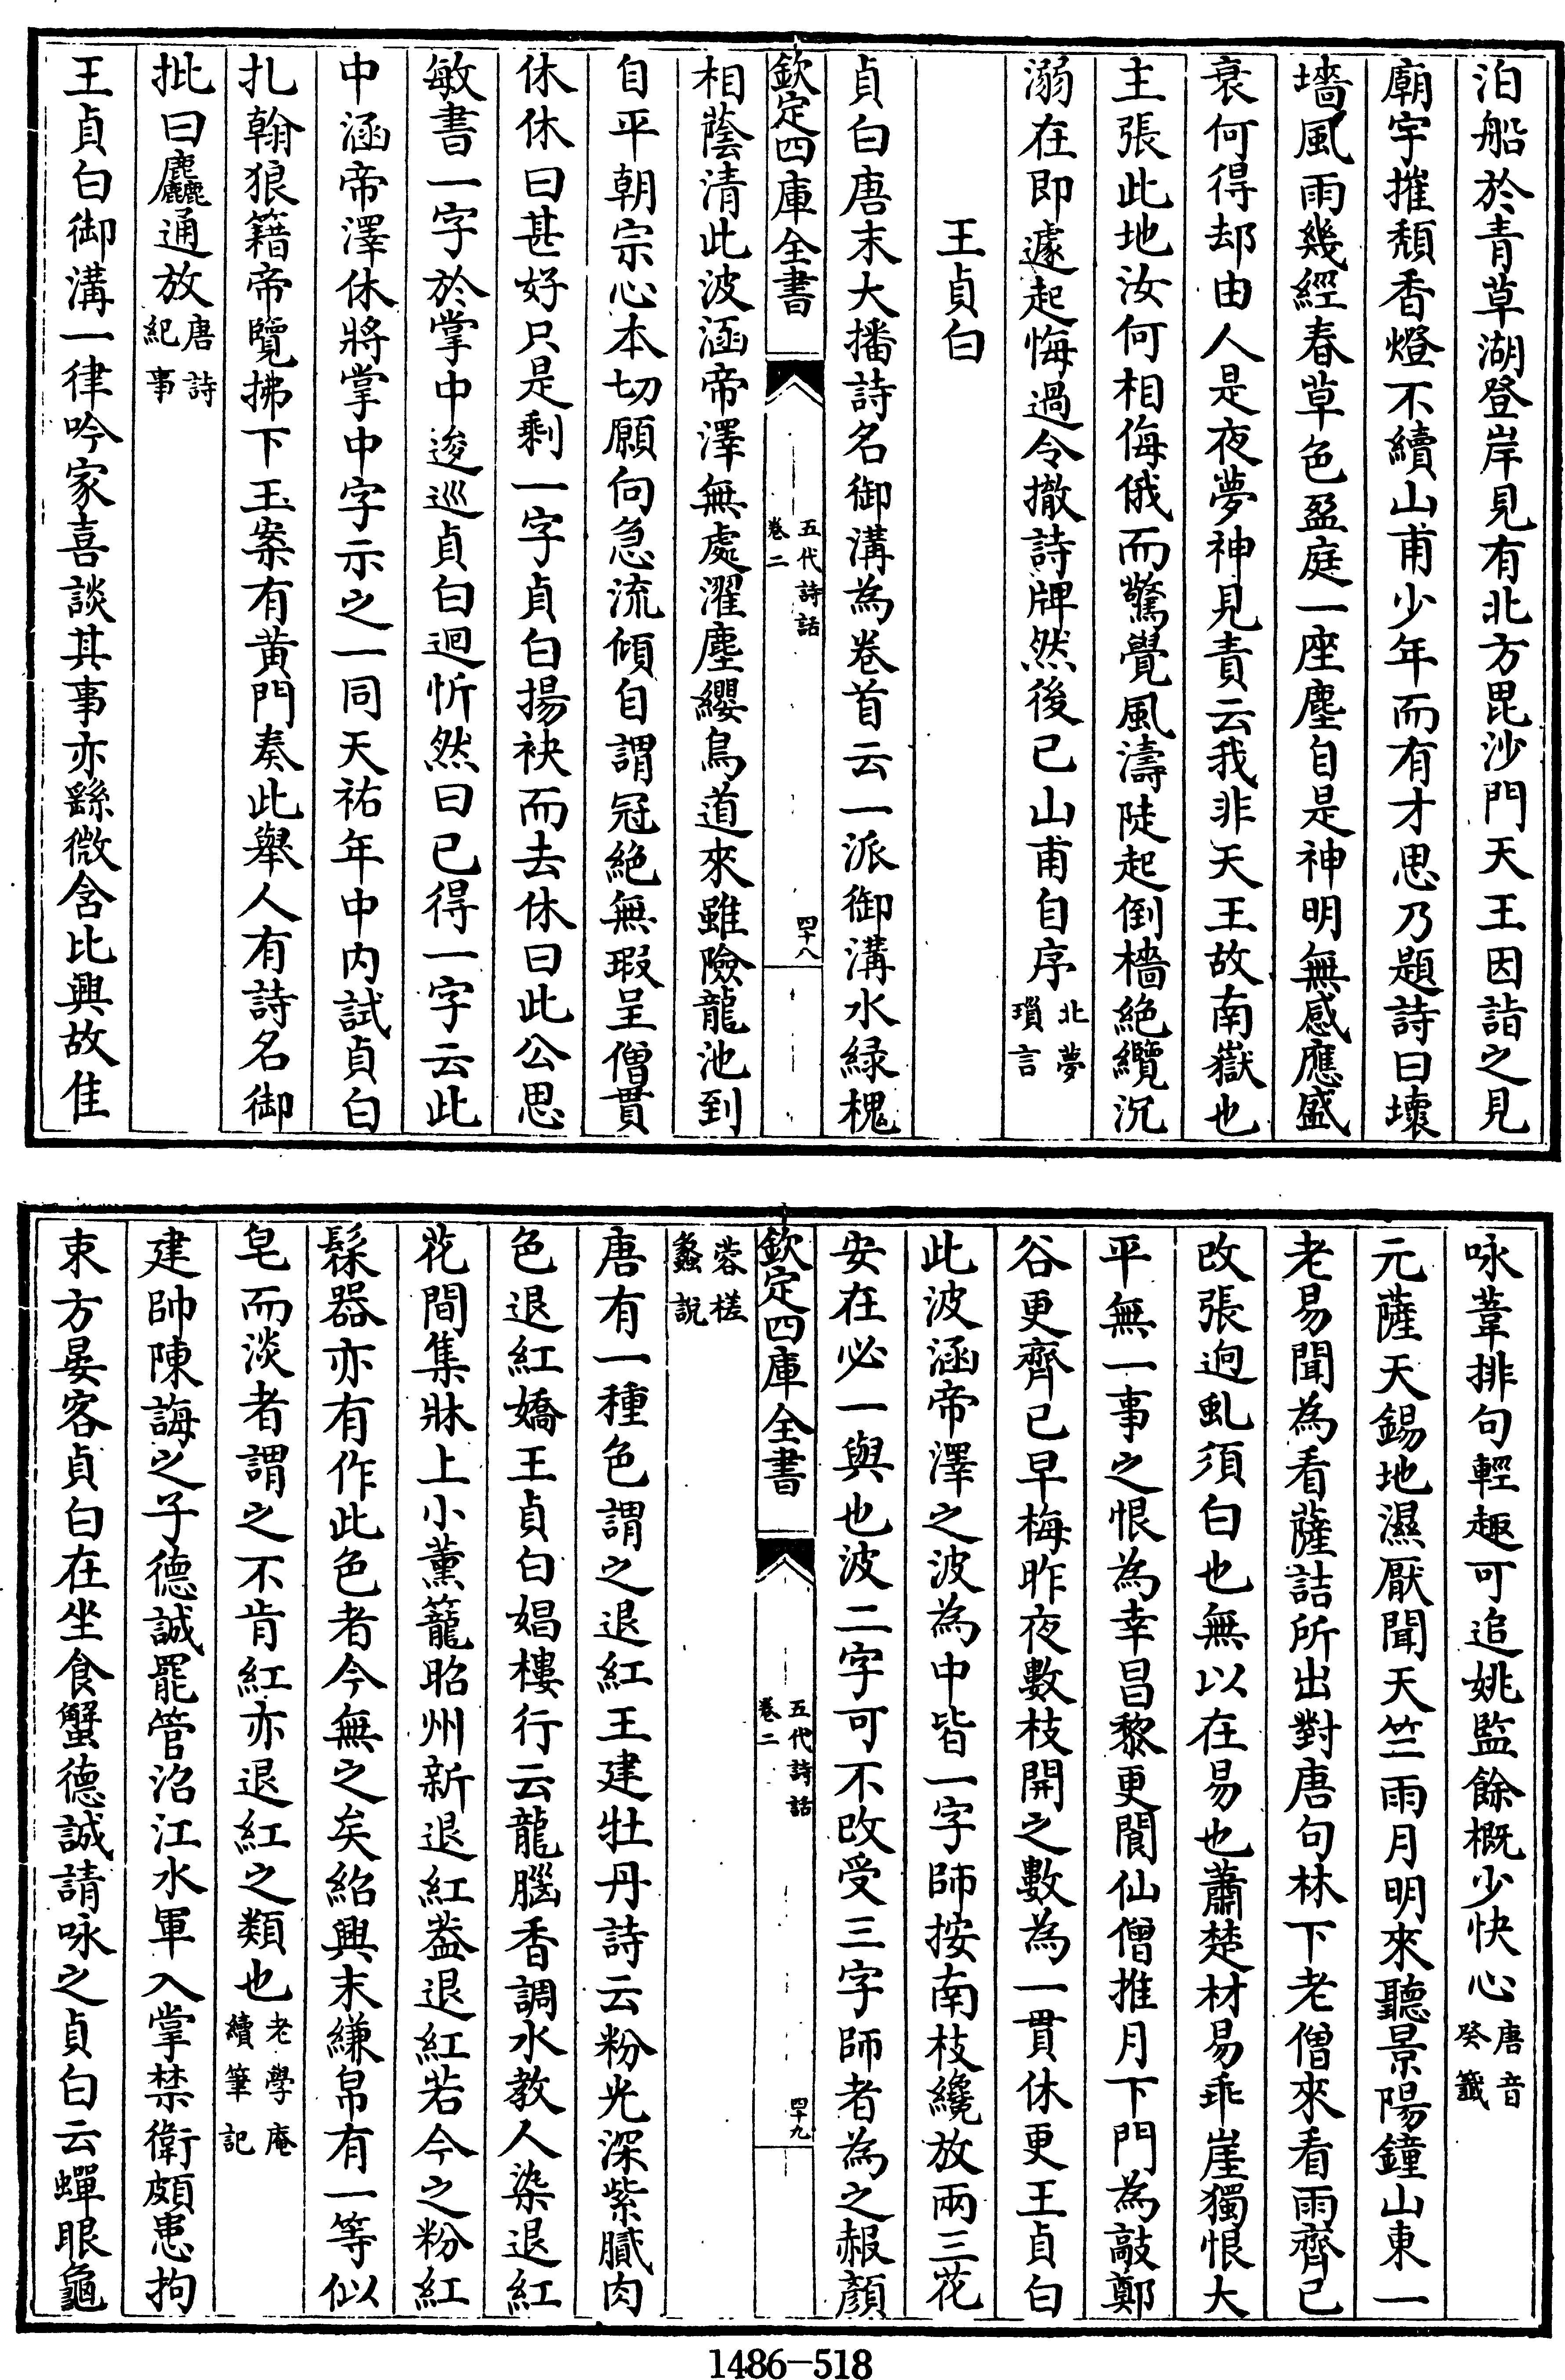 泊船於青草湖登岸見有北方毘沙門天王因詣之見
廟宇摧頽香燈不續山甫少年而有才思乃題詩曰壞
墻風雨幾經春草色盈庭一座塵自是神明無感應盛
衰何得却由人是夜夢神見責云我非天王故南嶽也
主張此地汝何相侮俄而驚覺風濤陡起倒檣絶纜沉
溺在即遽起悔過令撤詩牌然後已山甫自序北夢瑣言
王貞白
貞白唐末大播詩名御溝為卷首云一派御溝水緑槐
欽定四庫全書 五代詩話 卷二 四十八
相蔭清此波涵帝澤無處濯塵纓鳥道來雖險龍池到
自平朝宗心本切願向急流傾自謂冠絶無瑕呈僧貫
休休曰甚好只是剩一字貞白揚袂而去休曰此公思
敏書一字於掌中逡巡貞白迴忻然曰已得一字云此
中涵帝澤休將掌中字示之一同天祐年中内試貞白
扎翰狼籍帝覽拂下玉案有黄門奏此舉人有詩名御
批曰麤通放唐詩紀事
王貞白御溝一律吟家喜談其事亦繇微含比興故佳
咏葦排句輕趣可追姚監餘概少快心唐音癸籖
元薩天錫地濕厭聞天竺雨月明來聽景陽鐘山東一
老易聞為看薩詰所出對唐句林下老僧來看雨齊己
改張逈虬須白也無以在易也蕭楚材易乖崖獨恨大
平無一事之恨為幸昌黎更閬仙僧推月下門為敲鄭
谷更齊己早梅昨夜數枝開之數為一貫休更王貞白
此波涵帝澤之波為中皆一字師按南枝纔放兩三花
安在必一與也波二字可不改受三字師者為之赧顔
欽定四庫全書 五代詩話 卷二 四十九
蓉槎蠡說
唐有一種色謂之退紅王建牡丹詩云粉光深紫膩肉
色退紅嬌王貞白娼樓行云龍腦香調水教人染退紅
花間集牀上小薰籠昭州新退紅葢退紅若今之粉紅
髹器亦有作此色者今無之矣紹興末縑帛有一等似
皂而淡者謂之不肯紅亦退紅之類也老學庵續筆記
建帥陳誨之子德誠罷管沿江水軍入掌禁衛頗患拘
束方晏客貞白在坐食蟹德誠請咏之貞白云蟬眼龜
1486—518